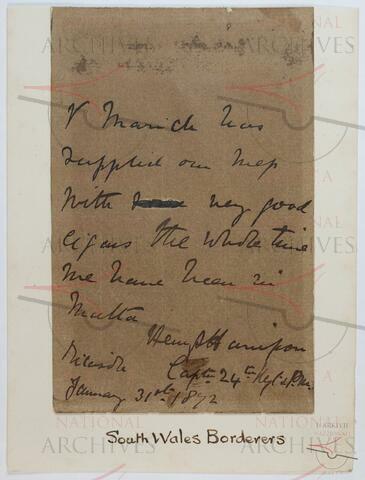 V Marich has
supplied our Mess
with very good
cigars the whole time
we have been in
Malta
Capt. 24th Regt
January 31st 1872
South Wales Borderers
NATIONAL
ARCHIVES